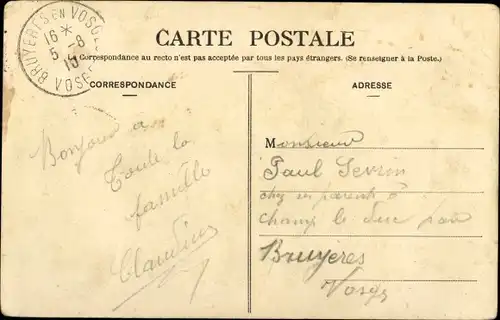 BRUYERES EN VOSGES
16 *
5 - 8
VOSGES
CARTE POSTALE
La Correspondance au recto n'est pas acceptée par tous les pays étrangers. (Se renseigner à la Poste.)
CORRESPONDANCE
Bonjour a
Toute la
famille
ADRESSE
Monsieur
Paul
chez ses parents à
Champ le duc par
Bruyères
Vosges